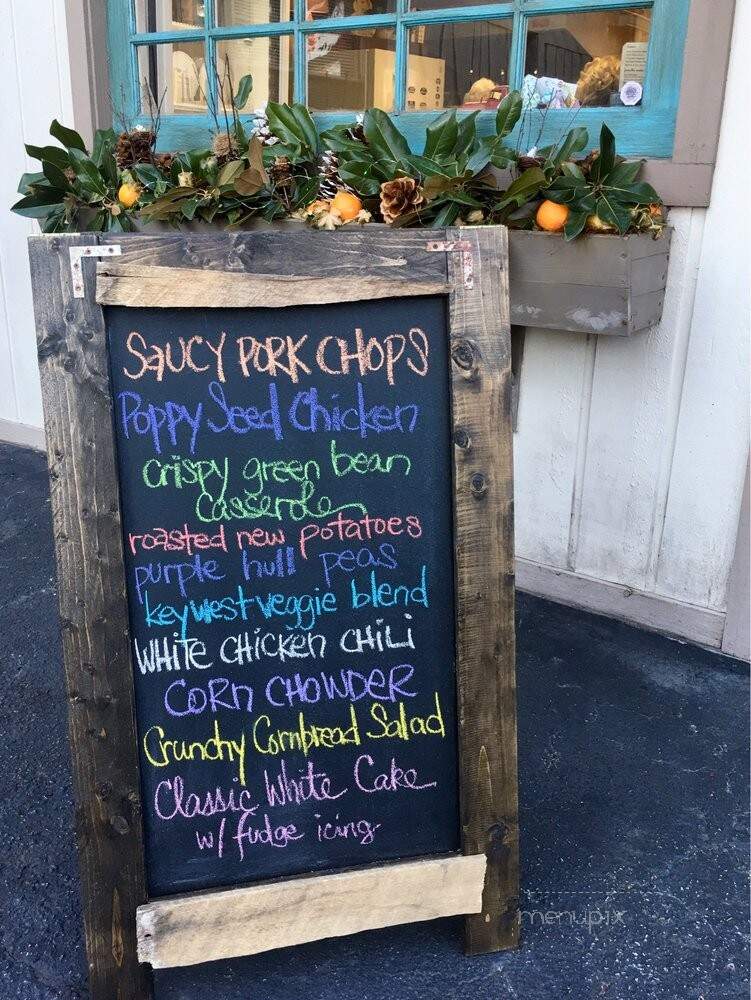 SAUCY PORK CHOPS
Poppy Seed Chicken
crispy green bean
casserole
roasted new potatoes
purple hull peas
key west veggie blend
WHITE CHICKEN CHILI
CORN CHOWDER
Crunchy Cornbread Salad
Classic White Cake
w/ fudge icing.
menupix